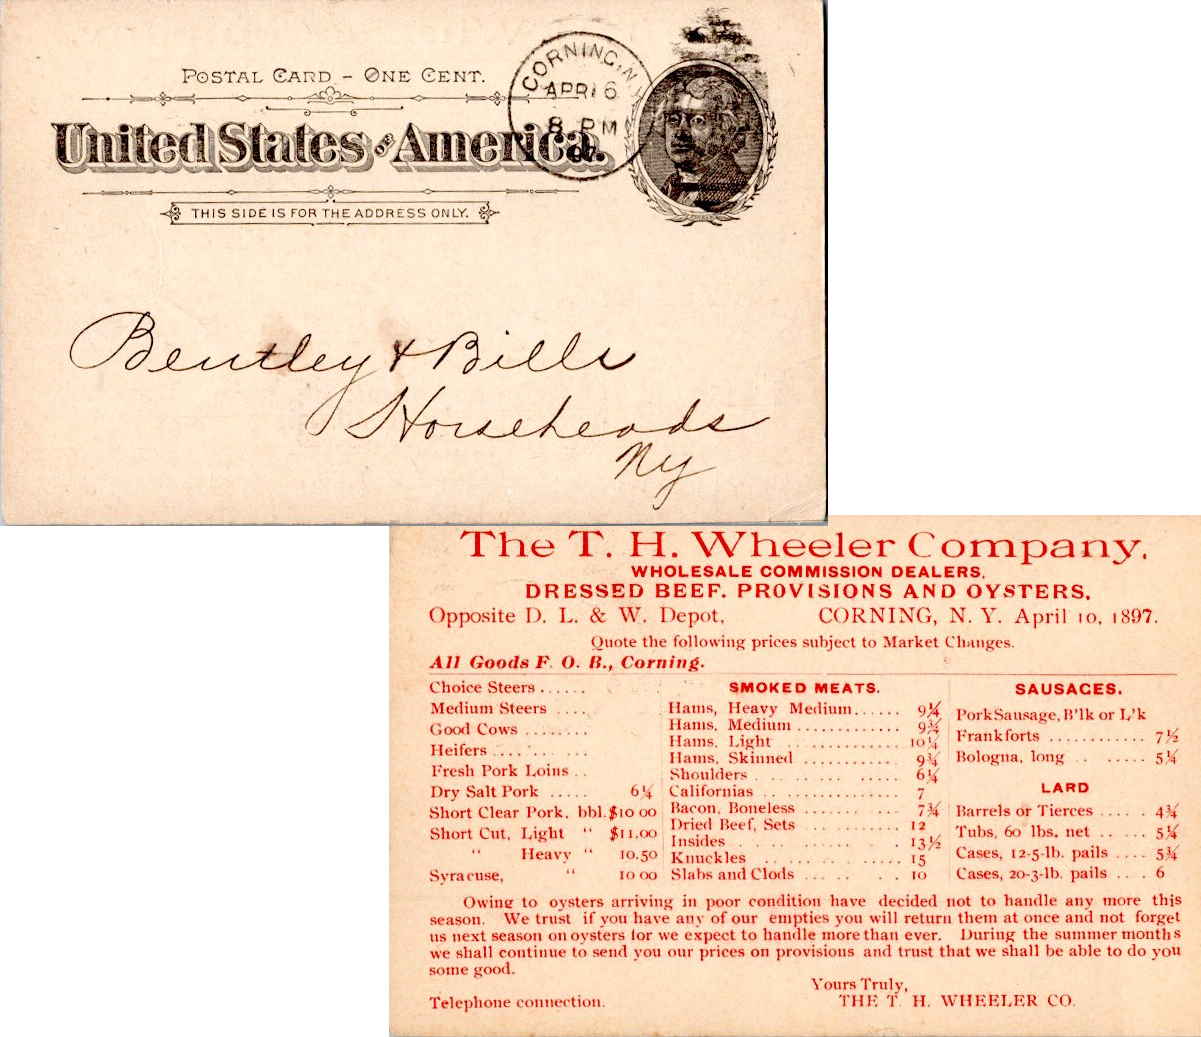 POSTAL CARD - ONE CENT.
United States OF America.
THIS SIDE IS FOR THE ADDRESS ONLY.
CORNING, N.Y.
APR 16
8 PM
97
Bentley & Bills
Horseheads
Ny
The T. H. Wheeler Company,
WHOLESALE COMMISSION DEALERS,
DRESSED BEEF, PROVISIONS AND OYSTERS,
Opposite D. L. & W. Depot, CORNING, N. Y. April 10, 1897.
Quote the following prices subject to Market Changes.
All Goods F. O. B., Corning.
Choice Steers ......
Medium Steers ....
Good Cows ........
Heifers ...........
Fresh Pork Loins ..
Dry Salt Pork ..... 6¼
Short Clear Pork, bbl. $10 00
Short Cut, Light " $11.00
" Heavy " 10.50
Syracuse, " 10 00
SMOKED MEATS.
Hams, Heavy Medium...... 9¼
Hams, Medium ............ 9¾
Hams, Light .............. 10¼
Hams, Skinned ........... 9¾
Shoulders ............... 6¼
Californias .............. 7
Bacon, Boneless .......... 7¾
Dried Beef, Sets ........... 12
Insides .................. 13½
Knuckles ................ 15
Slabs and Clods .......... 10
SAUSAGES.
Pork Sausage, B'lk or L'k
Frankforts ............ 7½
Bologna, long ......... 5¼
LARD
Barrels or Tierces ..... 4¾
Tubs, 60 lbs. net ....... 5¼
Cases, 12-5-lb. pails .... 5¾
Cases, 20-3-lb. pails .... 6
Owing to oysters arriving in poor condition have decided not to handle any more this
season. We trust if you have any of our empties you will return them at once and not forget
us next season on oysters for we expect to handle more than ever. During the summer months
we shall continue to send you our prices on provisions and trust that we shall be able to do you
some good.
Yours Truly,
Telephone connection. THE T. H. WHEELER CO.